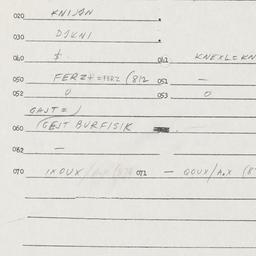 020 KNIJØN
030 DJKNI
040 $ 041 KNEXL=KN
050 FERZ*=FERZ (812 051 –
052 0 053 0
GAST=)
060 (GEST BURFISIK
062 –
070 INOUX/ 071 – QOUX/A.X (8